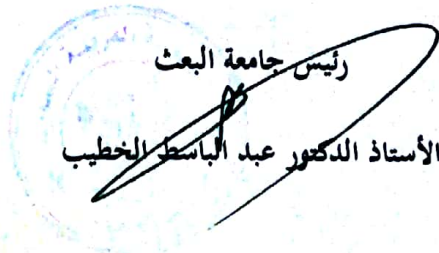 رئيس جامعة البعث
الأستاذ الدكتور عبد الباسط الخطيب